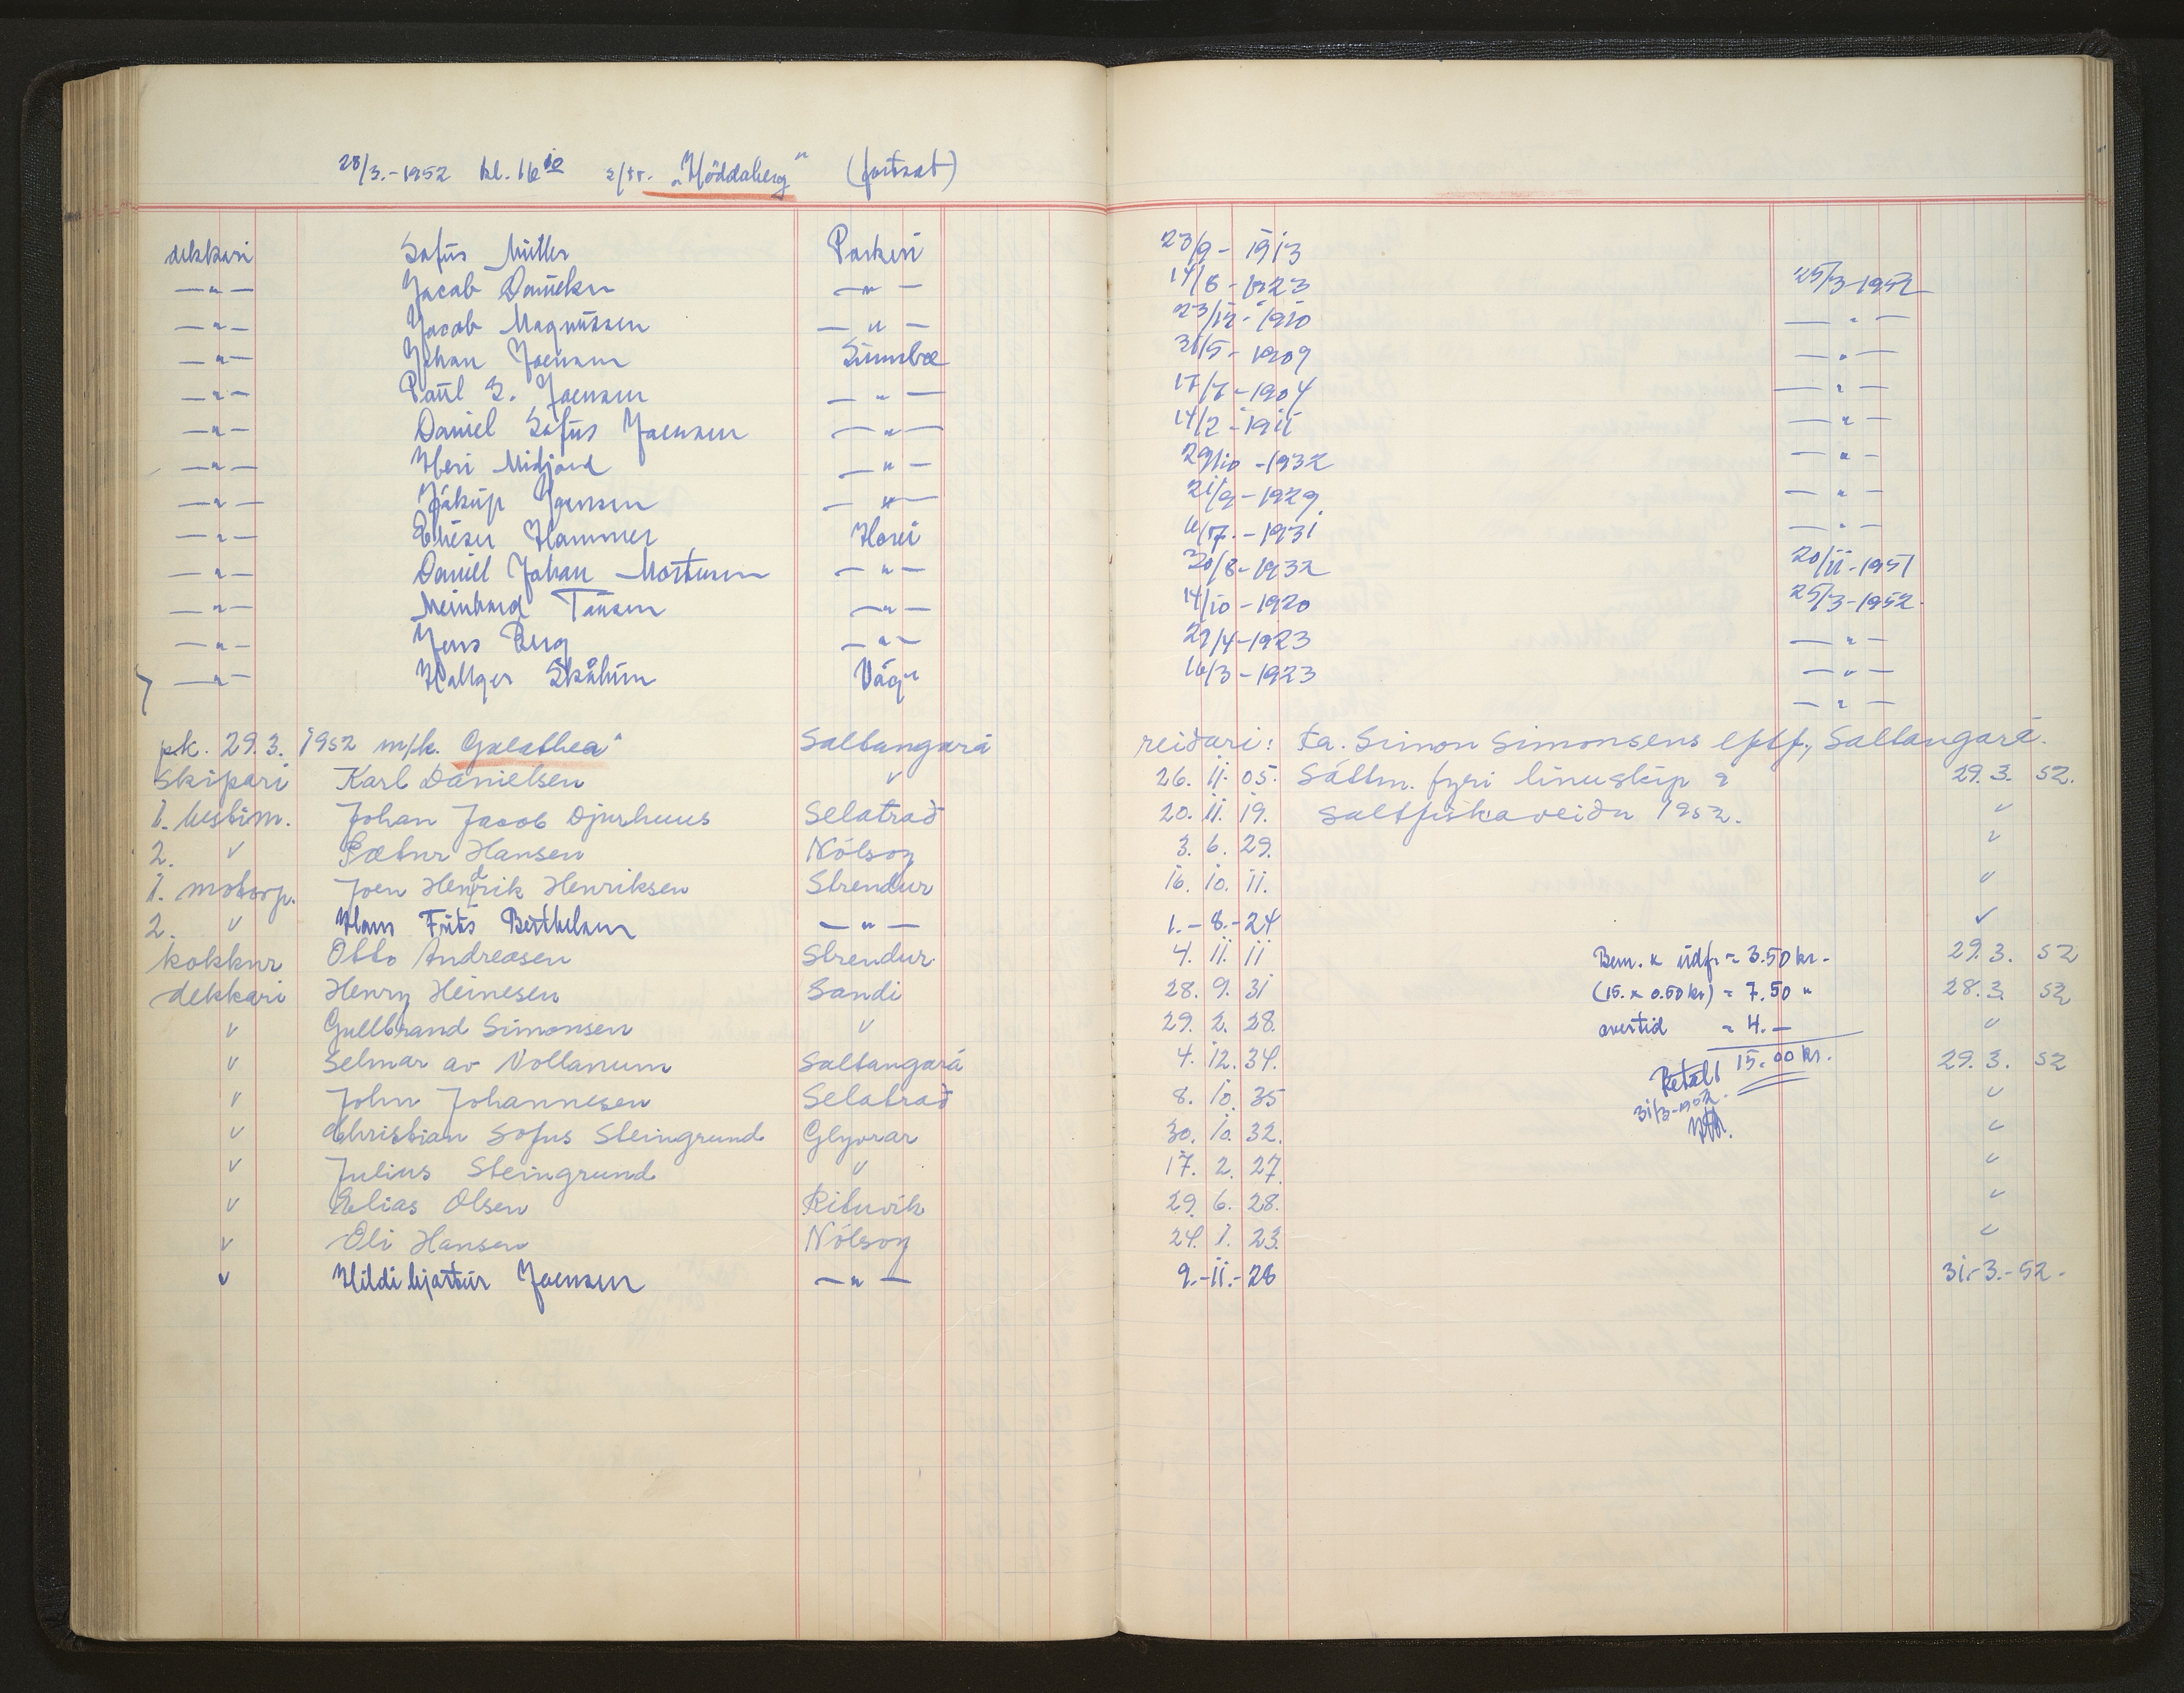 28/3.-1952 kl. 16 10 s/tr. „Høddaberg" (fortsat)
dekkari Sofus Müller Porkeri 23/9 - 1913
—"— Jacob —"— 14/8 - 1923 25/3-1952
—"— Jacob Magnussen —"— 23/12 - 1910 —"—
—"— Johan Joensen Sumbøe 31/5 - 1909 —"—
—"— Paul S. Joensen —"— 17/7 - 1904 —"—
—"— Daniel Sofus Joensen —"— 14/2 - 1911 —"—
—"— Heri Midjord —"— 29/10 - 1932 —"—
—"— Jákup Joensen —"— 21/9 - 1929 —"—
—"— Eliesar Hammer Hovi 6/7. - 1931 —"—
—"— Daniel Johan Mortensen —"— 30/8 - 1932 20/11-1951
—"— Meinhard Tausen —"— 14/10 - 1920 25/3-1952
—"— Jens Berg —"— 27/4-1923 —"—
—"— Hallger Skålum Vági 16/3 - 1923 —"—
—"—
pk. 29.3. 1952 m/k. Galathea" Saltangará reiðari: fa. Simon Simonsens eftf., Saltangará.
skipari Karl Danielsen " 26. 11. 05. Sáttm. fyri línuskip á 29. 3. 52.
1. bestim. Johan Jacob Djurhuus Selatrað 20. 11. 19. saltfiskaveiðu 1952. "
2. " Pætur Hansen Nólsoy 3. 6. 29. "
1. motorp. Joen Hendrik Henriksen Strendur 16. 10. 11. "
2. " Hans Frits Berthelsen —"— 1. - 8. - 24 "
kokkur Otto Andreasen Strendur 4. 11. 11 Bem. x udf. = 3.50 kr. - 29. 3. 52
dekkari Henry Heinesen Sandi 28. 9. 31 (15. x 0.50 kr) = 7.50 " 28. 3. 52
" Gullbrand Simonsen " 29. 2. 28. overtid = 4. — "
" Selmar av Vollanum Saltangará 4. 12. 34. 15.00 kr. 29. 3. 52
" John Johannesen Selatrað 8. 10. 35 Betalt 31/3-1952. "
" Christian Sofus Steingrund Glyvrar 30. 10. 32. "
" Julius Steingrund " 17. 2. 27. "
" Elias Olsen Rituvík 29. 6. 28. "
" Oli Hansen Nólsoy 24. 1. 23. "
" Hildibjartur Joensen —"— 9.-11.-28 31.-3.-52.